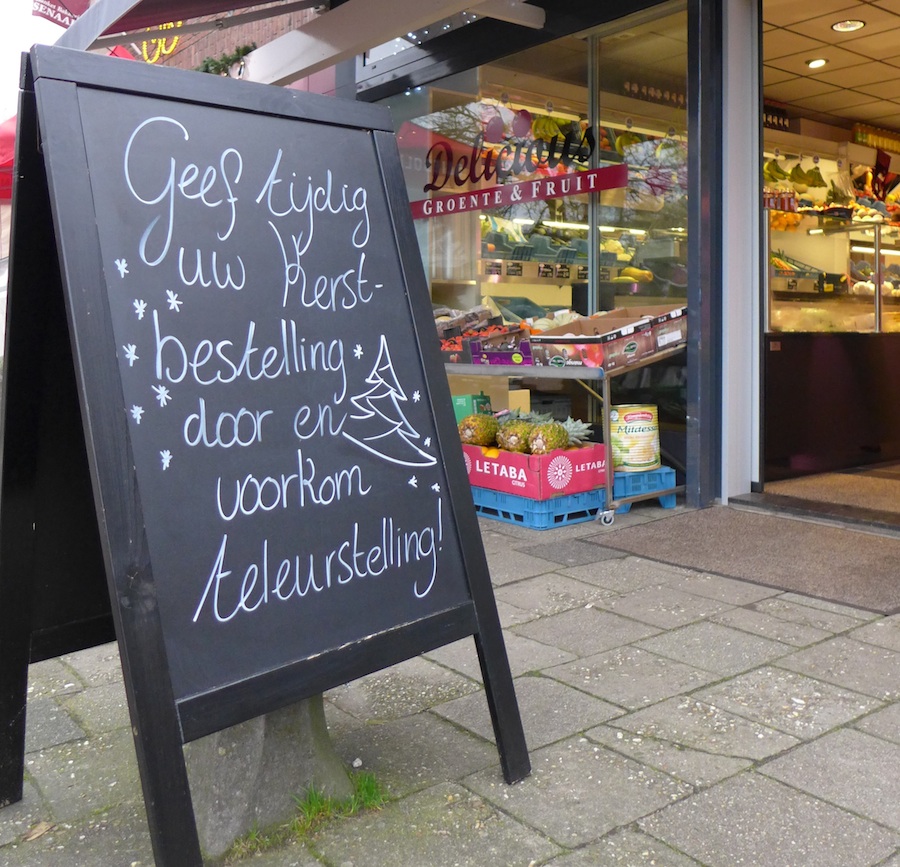 Geef tijdig
uw Kerst-
bestelling
door en
voorkom
teleurstelling!
Delicious
GROENTE & FRUIT
LETABA
CITRUS
LETABA
Mildessa